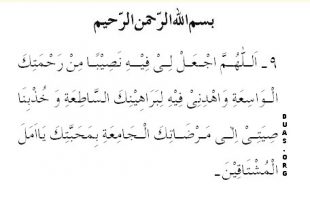 بسم الله الرّحمن الرّحيم
٩ـ اَللّٰهُمَّ اجْعَلْ لِىْ فِيْهِ نَصِيْبًا مِنْ رَحْمَتِكَ
الْوَاسِعَةِ وَاهْدِنِىْ فِيْهِ لِبَرَاهِيْنِكَ السَّاطِعَةِ وَ خُذْبِنَا
صِيَتِىْ اِلٰى مَرْضَاتِكَ الْجَامِعَةِ بِمَحَبَّتِكَ يَااَمَلَ
الْمُشْتَاقِيْنَ ـ
BUAS.ORG